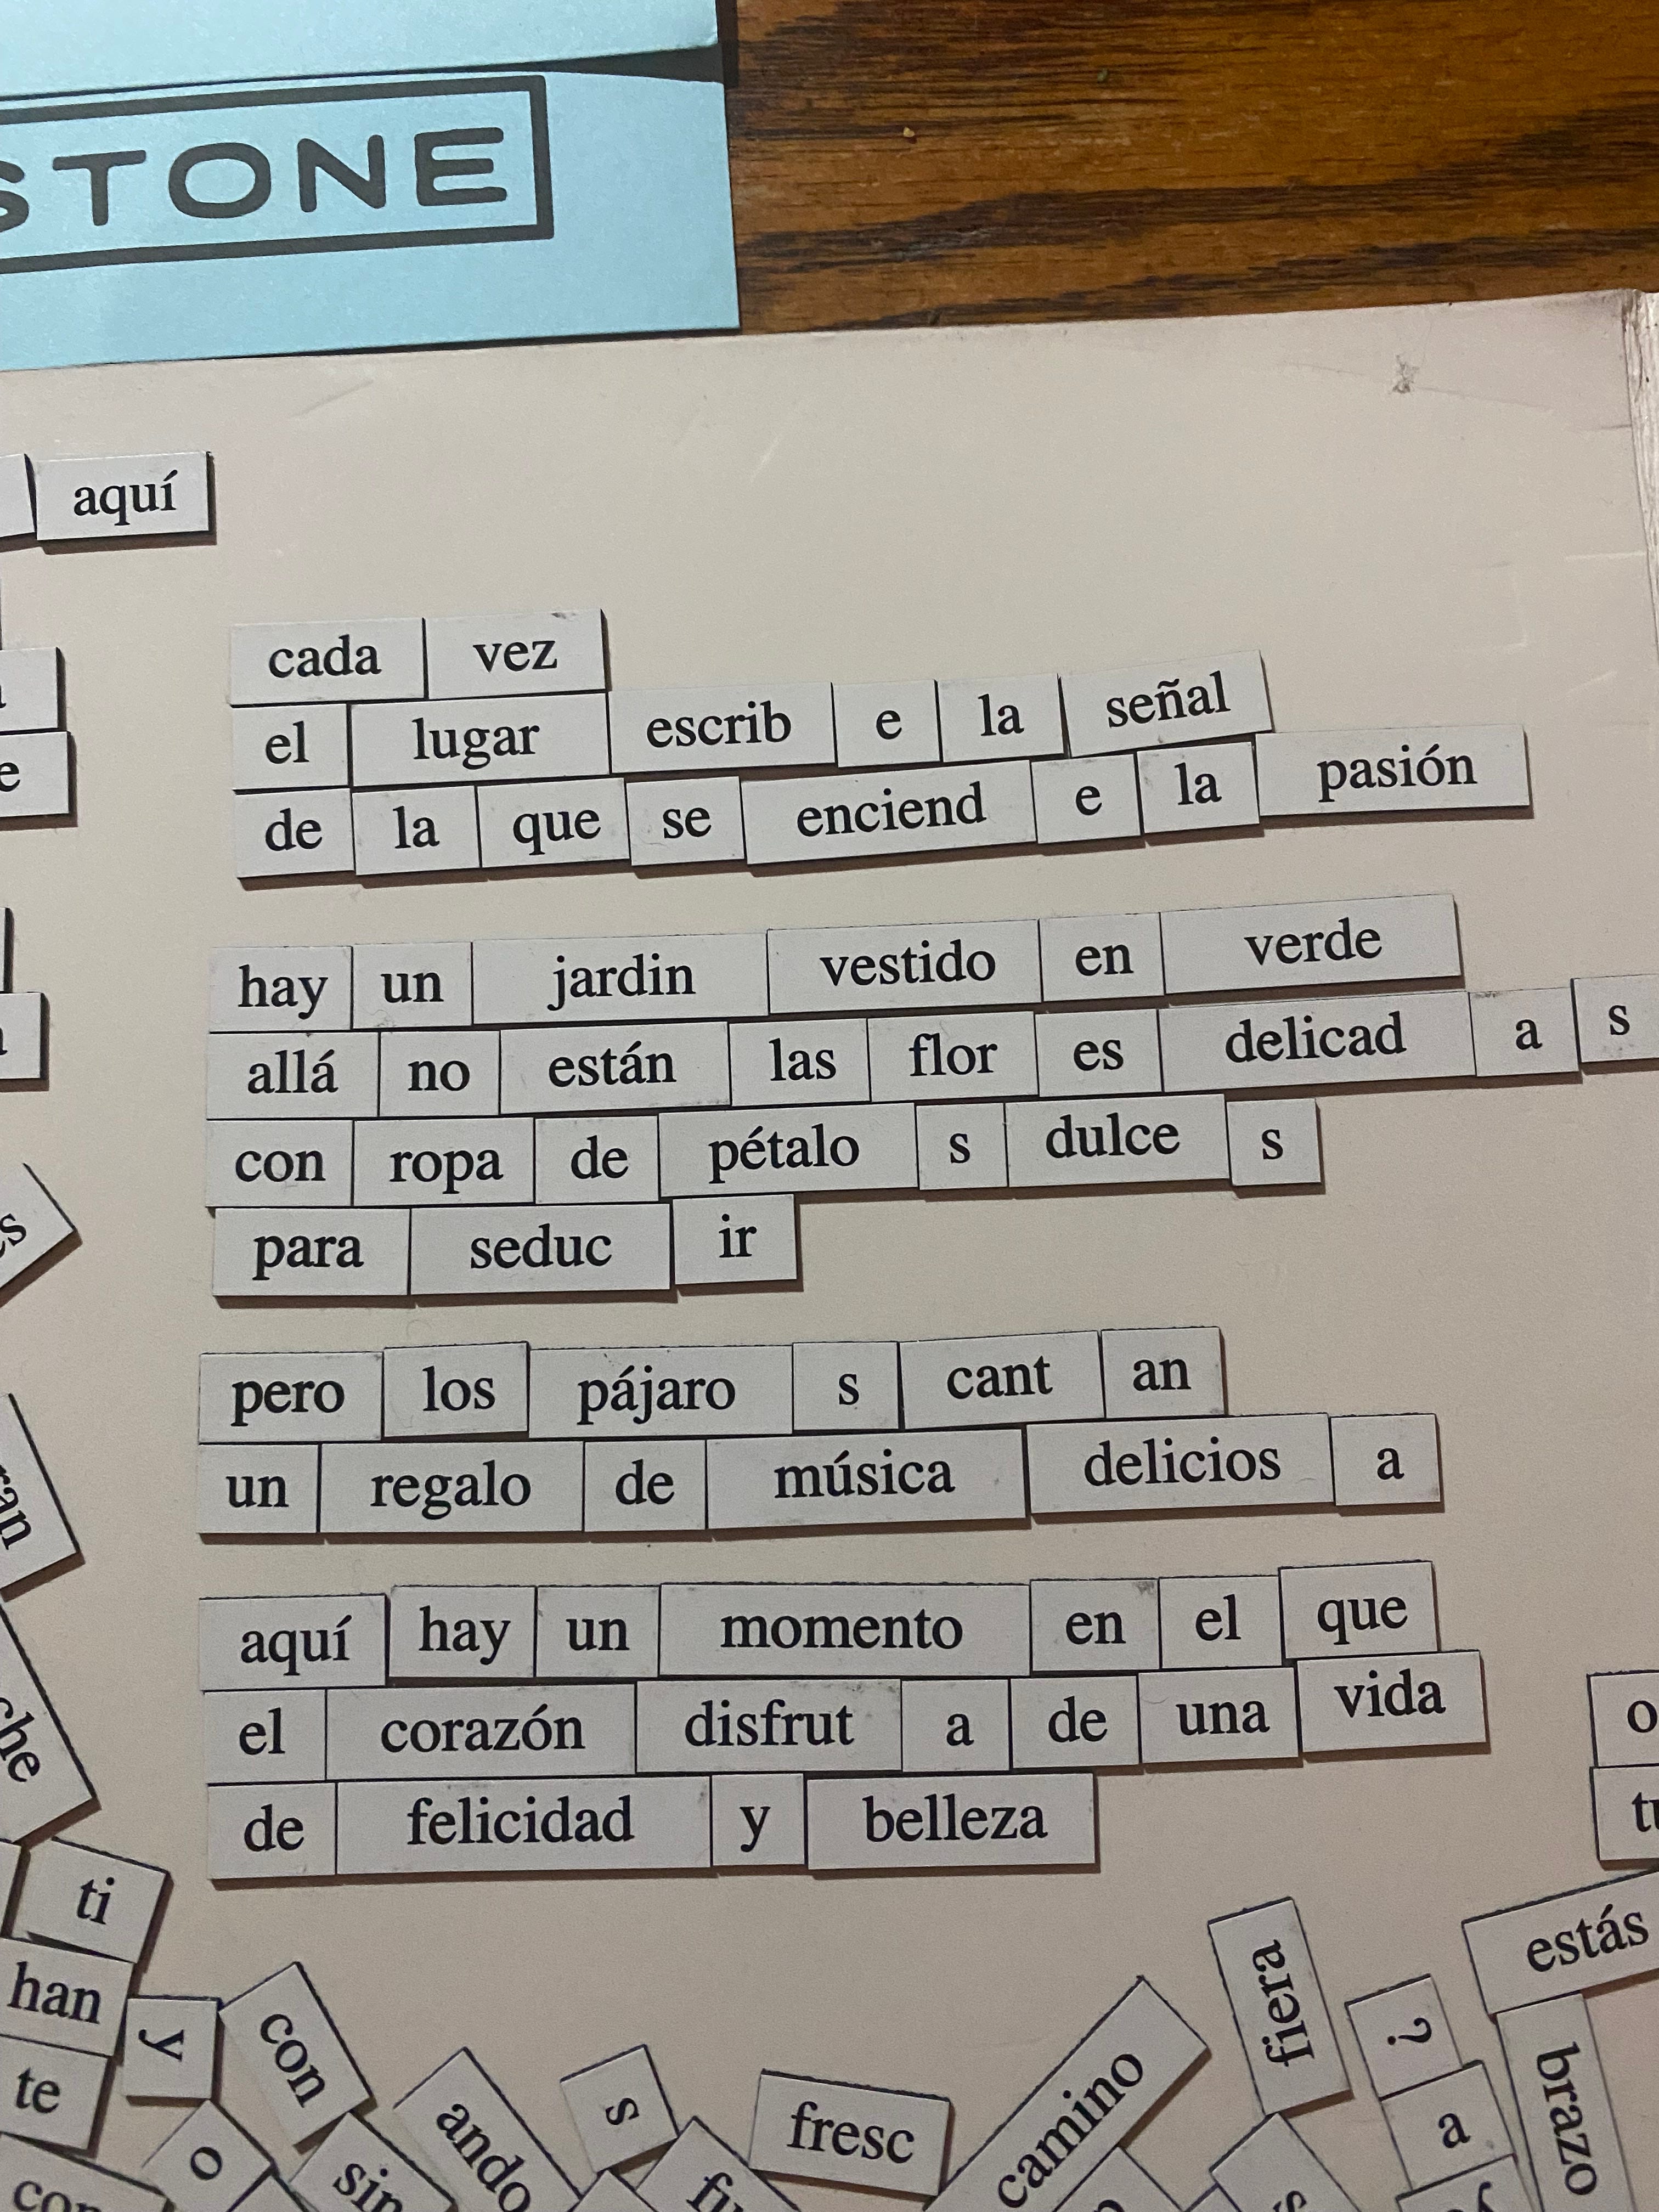 STONE
aquí
cada vez
el lugar escrib e la señal
de la que se enciend e la pasión
hay un jardin vestido en verde
allá no están las flor es delicad a s
con ropa de pétalo s dulce s
para seduc ir
pero los pájaro s cant an
un regalo de música delicios a
aquí hay un momento en el que
el corazón disfrut a de una vida
de felicidad y belleza
ti
han
te
y
con
o
ando
s
fresc
camino
fiera
?
a
estás
brazo